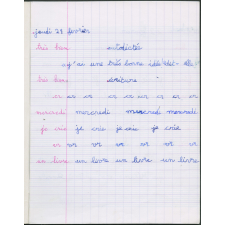 jeudi 21 février
très bien autodictée
j'ai une très bonne idée
très bien écriture
mercredi mercredi mercredi mercredi
je crie je crie je crie je crie
or or or or or or
un livre un livre un livre un livre